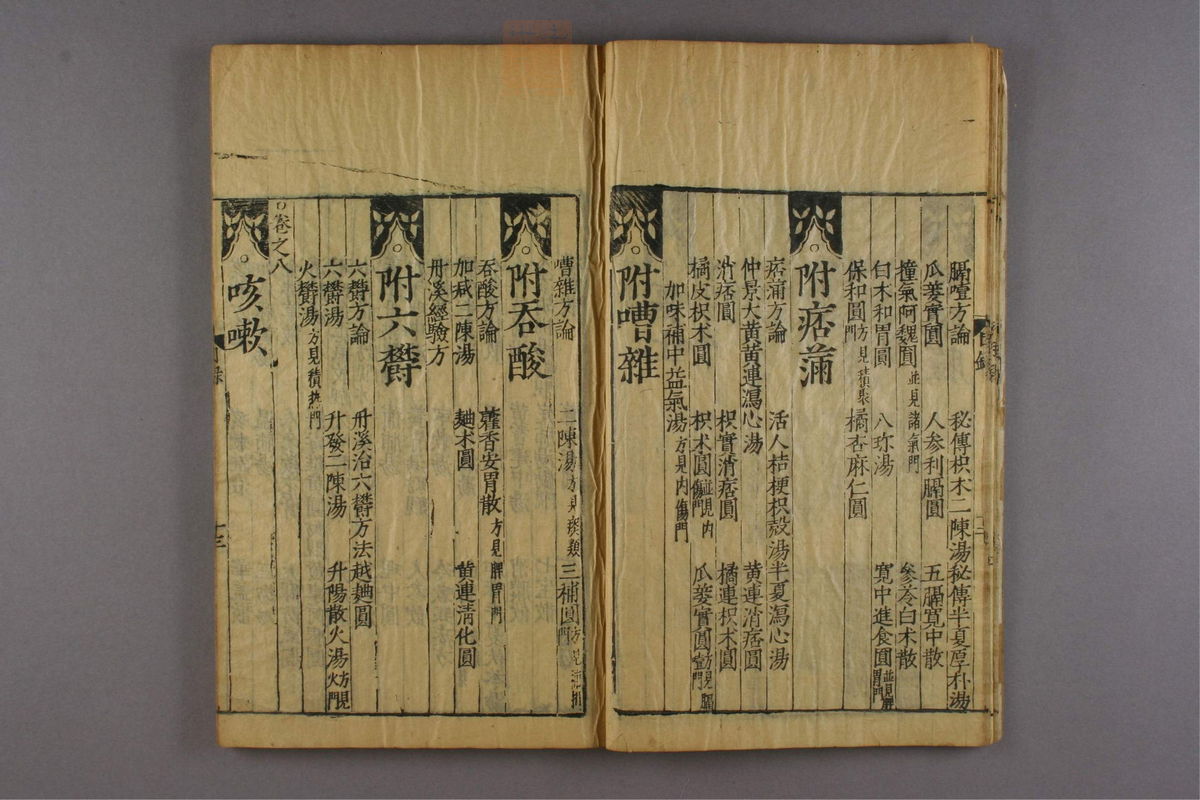 膈噎方論　秘傳枳术二陳湯　秘傳半夏厚朴湯
瓜蔞實圓　人參利膈圓　五膈寬中散
撞氣阿魏圓並見諸氣門　參苓白术散
白术和胃圓　八珎湯　寬中進食圓並見脾胃門
保和圓方見積聚門　橘杏麻仁圓
附痞滿
痞滿方論　活人桔梗枳殼湯　半夏瀉心湯
仲景大黃黃連瀉心湯　黃連消痞圓
消痞圓　枳實消痞圓　橘連枳术圓
橘皮枳术圓　枳术圓並見内傷門　瓜蔞實圓方見膈門
加味補中益氣湯方見内傷門
附嘈雜
嘈雜方論　二陳湯方見痰類　三補圓方見門
附吞酸
吞酸方論　藿香安胃散方見脾胃門
加减二陳湯　麯术圓　黃連清化圓
丹溪經驗方
附六欝
六欝方論　丹溪治六欝方法　越麯圓
六欝湯　升發二陳湯　升陽散火湯方見火門
火欝湯方見積熱門
卷之八
咳嗽